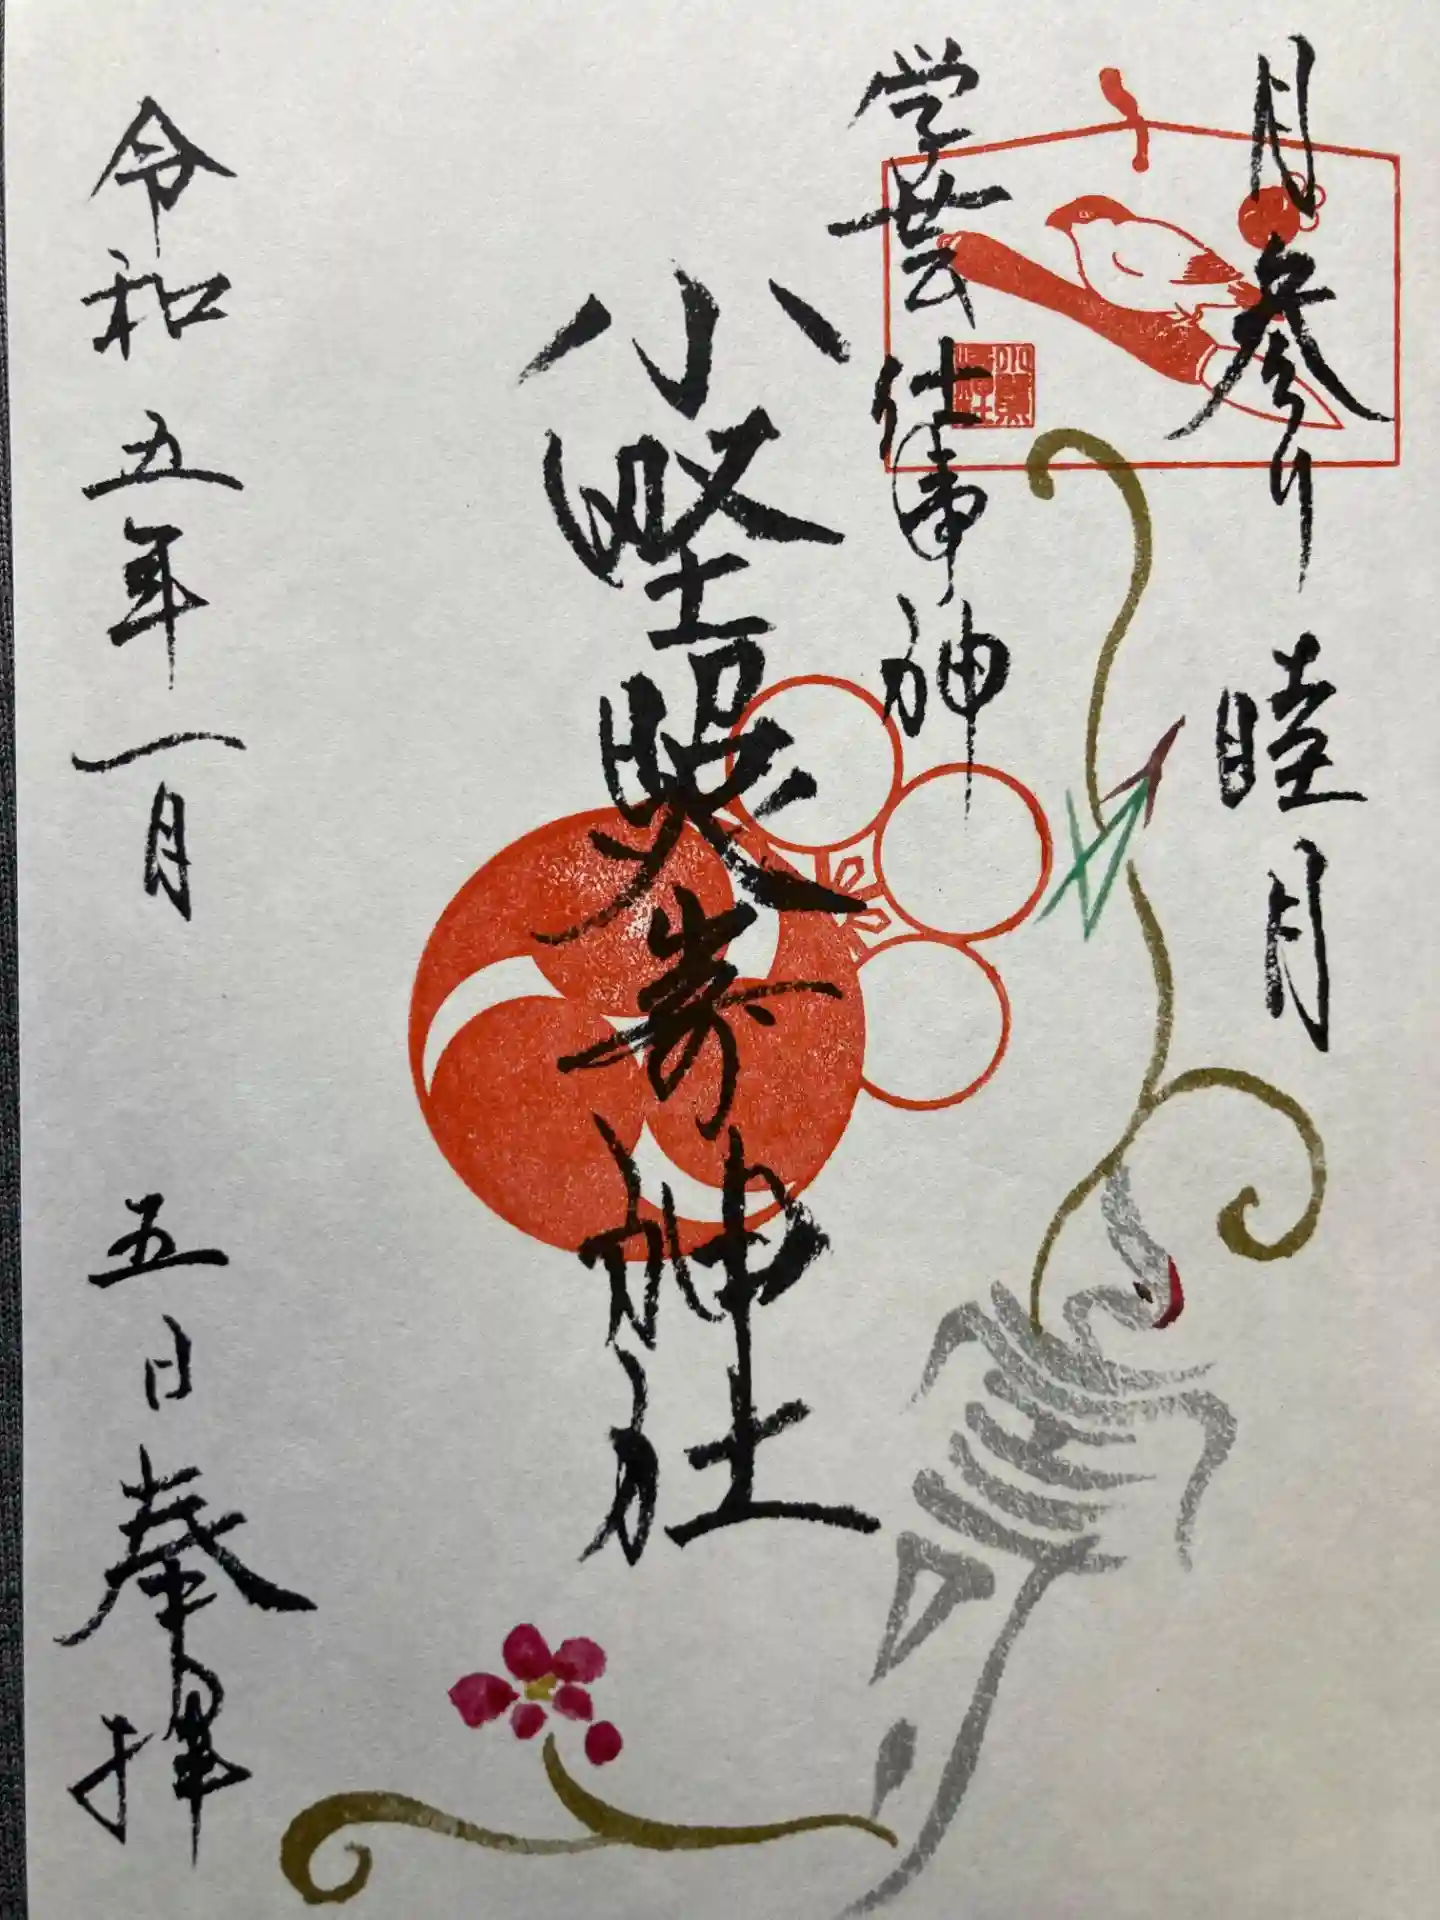 月参り 睦月
学芸仕事神
小野照崎神社
令和五年一月 五日奉拝